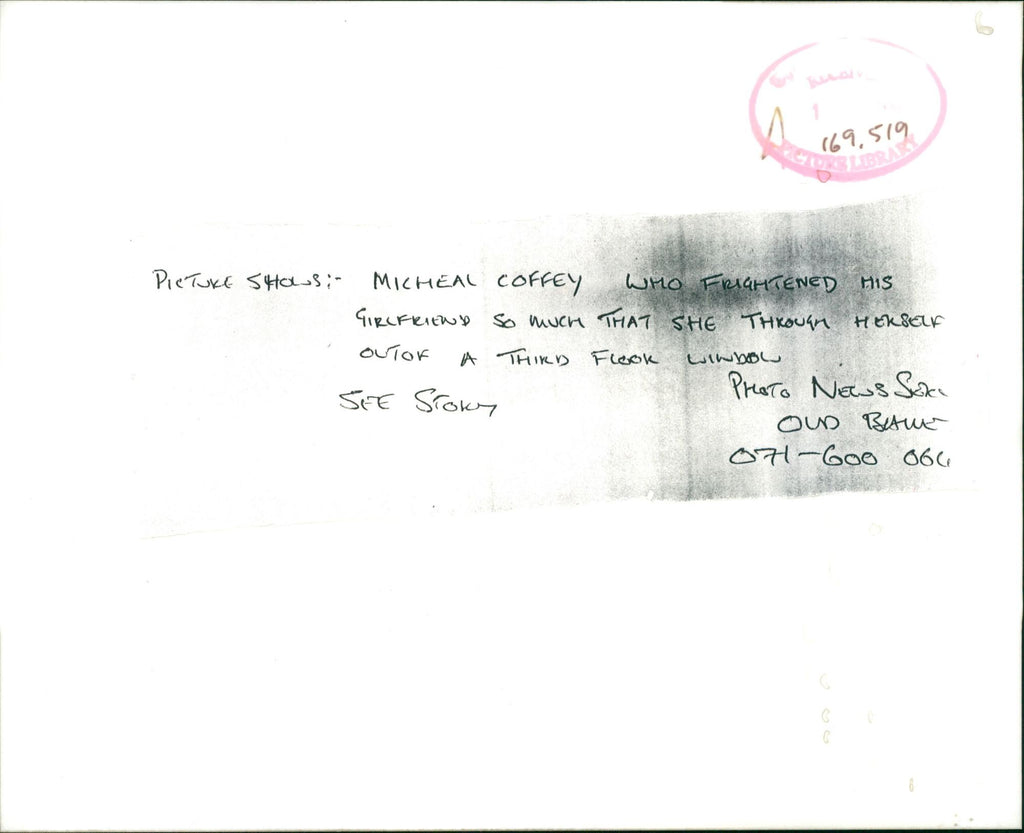 169.519
PICTURE LIBRARY
PICTURE SHOWS:- MICHEAL COFFEY WHO FRIGHTENED HIS
GIRLFRIEND SO MUCH THAT SHE THROUGH HERSELF
OUTOF A THIRD FLOOR WINDOW
SEE STORY
PHOTO NEWS
OLD
071-600 066